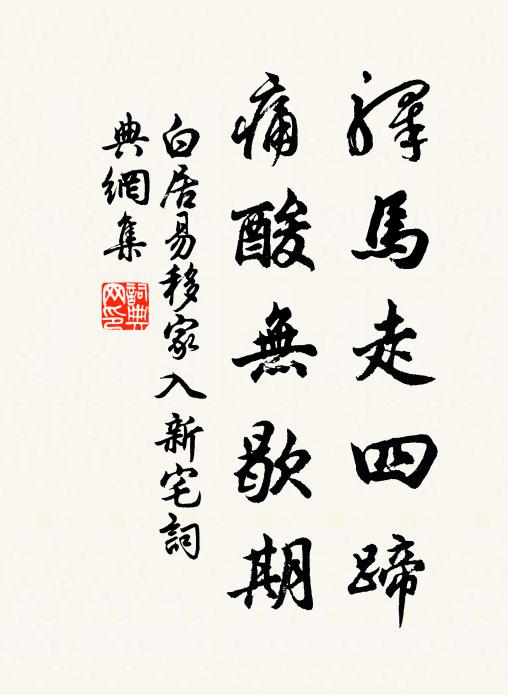 驛馬走四蹄
痛酸無歇期
白居易移家入新宅詞
典網集
詞典
网印